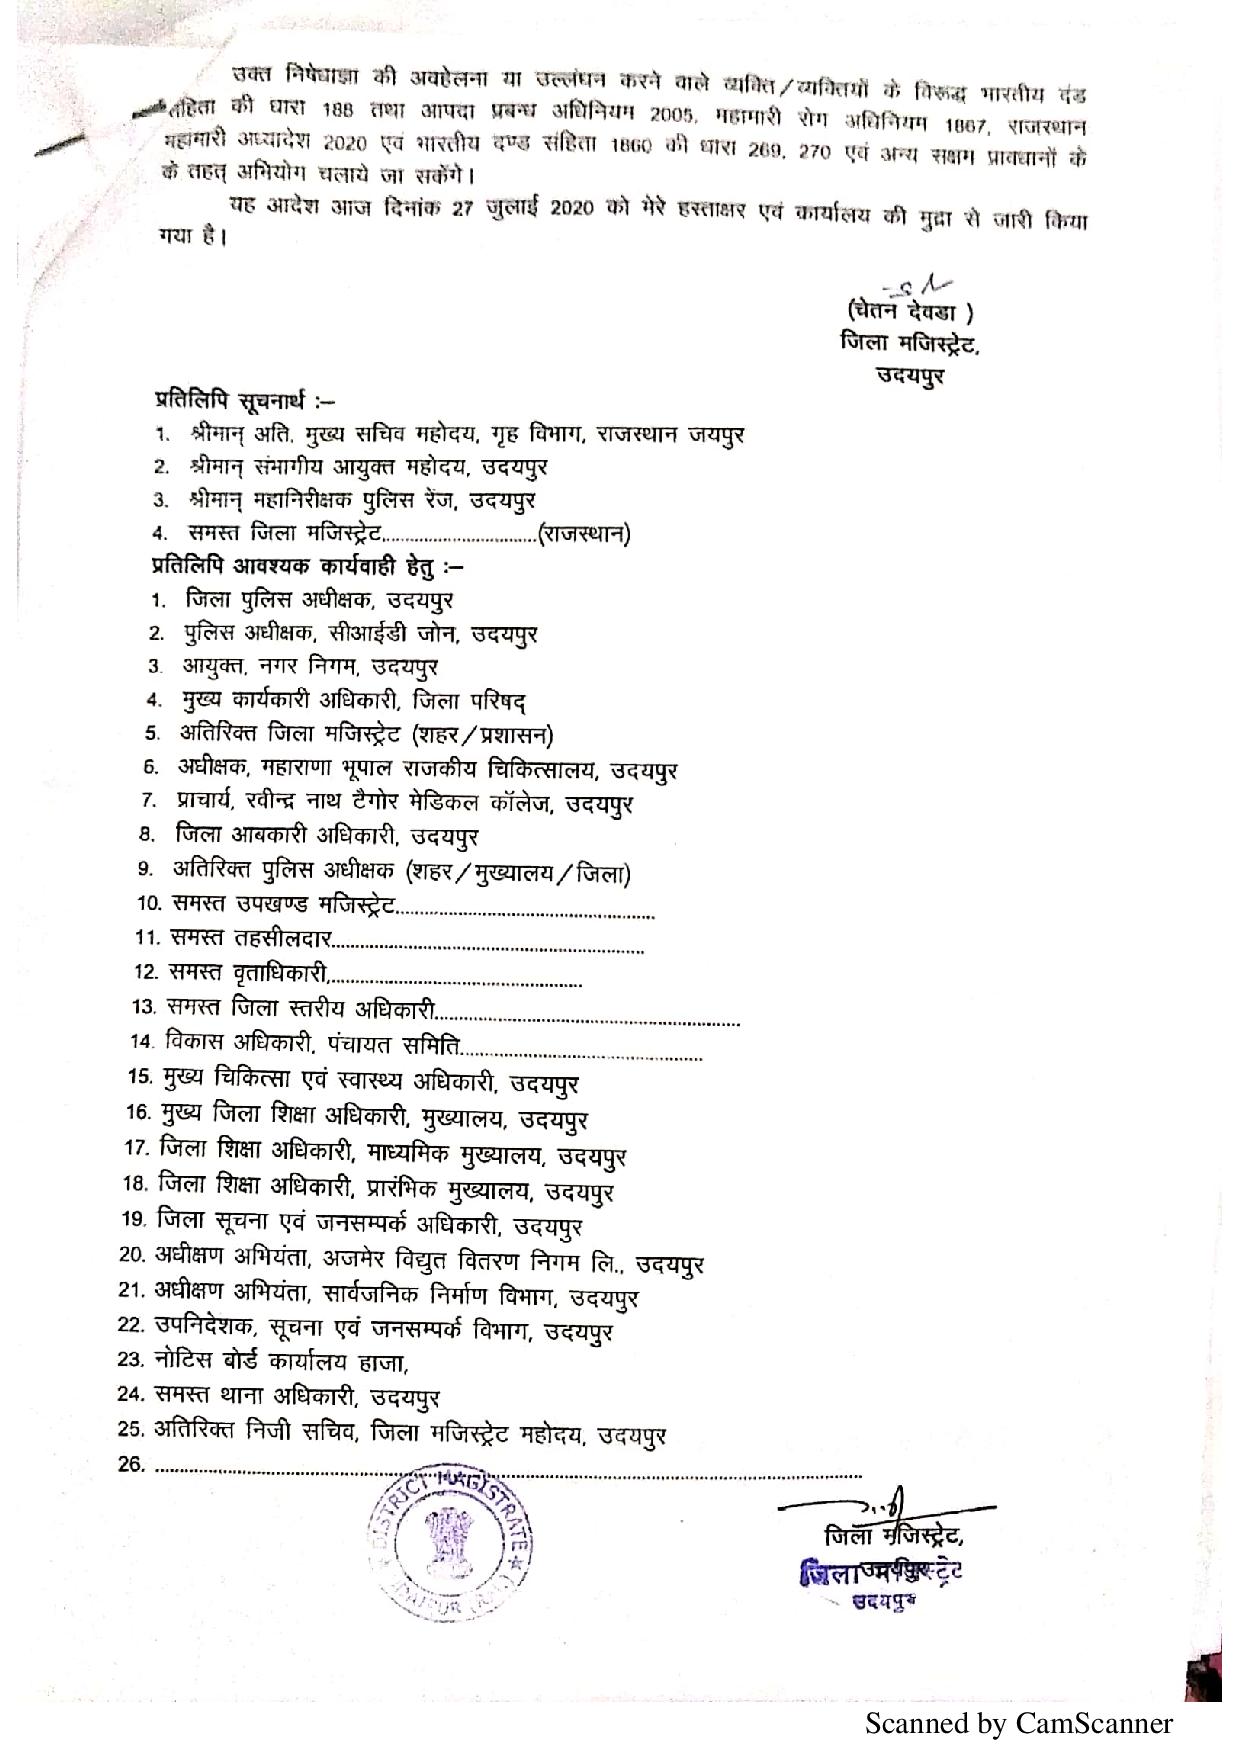 उक्त निषेधाज्ञा की अवहेलना या उल्लंघन करने वाले व्यक्ति/व्यक्तियों के विरूद्ध भारतीय दंड
संहिता की धारा 188 तथा आपदा प्रबन्ध अधिनियम 2005, महामारी रोग अधिनियम 1867, राजस्थान
महामारी अध्यादेश 2020 एवं भारतीय दण्ड संहिता 1860 की धारा 269, 270 एवं अन्य सक्षम प्रावधानों के
के तहत् अभियोग चलाये जा सकेंगे।
यह आदेश आज दिनांक 27 जुलाई 2020 को मेरे हस्ताक्षर एवं कार्यालय की मुद्रा से जारी किया
गया है।
(चेतन देवडा )
जिला मजिस्ट्रेट,
उदयपुर
प्रतिलिपि सूचनार्थ :–
1. श्रीमान् अति. मुख्य सचिव महोदय, गृह विभाग, राजस्थान जयपुर
2. श्रीमान् संभागीय आयुक्त महोदय, उदयपुर
3. श्रीमान् महानिरीक्षक पुलिस रेंज, उदयपुर
4. समस्त जिला मजिस्ट्रेट................................(राजस्थान)
प्रतिलिपि आवश्यक कार्यवाही हेतु :–
1. जिला पुलिस अधीक्षक, उदयपुर
2. पुलिस अधीक्षक, सीआईडी जोन, उदयपुर
3. आयुक्त, नगर निगम, उदयपुर
4. मुख्य कार्यकारी अधिकारी, जिला परिषद्
5. अतिरिक्त जिला मजिस्ट्रेट (शहर/प्रशासन)
6. अधीक्षक, महाराणा भूपाल राजकीय चिकित्सालय, उदयपुर
7. प्राचार्य, रवीन्द्र नाथ टैगोर मेडिकल कॉलेज, उदयपुर
8. जिला आबकारी अधिकारी, उदयपुर
9. अतिरिक्त पुलिस अधीक्षक (शहर/मुख्यालय/जिला)
10. समस्त उपखण्ड मजिस्ट्रेट.....................................................
11. समस्त तहसीलदार................................................................
12. समस्त वृताधिकारी,...................................................
13. समस्त जिला स्तरीय अधिकारी..............................................................
14. विकास अधिकारी, पंचायत समिति.................................................
15. मुख्य चिकित्सा एवं स्वास्थ्य अधिकारी, उदयपुर
16. मुख्य जिला शिक्षा अधिकारी, मुख्यालय, उदयपुर
17. जिला शिक्षा अधिकारी, माध्यमिक मुख्यालय, उदयपुर
18. जिला शिक्षा अधिकारी, प्रारंभिक मुख्यालय, उदयपुर
19. जिला सूचना एवं जनसम्पर्क अधिकारी, उदयपुर
20. अधीक्षण अभियंता, अजमेर विद्युत वितरण निगम लि., उदयपुर
21. अधीक्षण अभियंता, सार्वजनिक निर्माण विभाग, उदयपुर
22. उपनिदेशक, सूचना एवं जनसम्पर्क विभाग, उदयपुर
23. नोटिस बोर्ड कार्यालय हाजा,
24. समस्त थाना अधिकारी, उदयपुर
25. अतिरिक्त निजी सचिव, जिला मजिस्ट्रेट महोदय, उदयपुर
26. ..............................................................................................................
DISTRICT MAGISTRATE
UDAIPUR
जिला मजिस्ट्रेट,
उदयपुर
जिला मजिस्ट्रेट
उदयपुर
Scanned by CamScanner